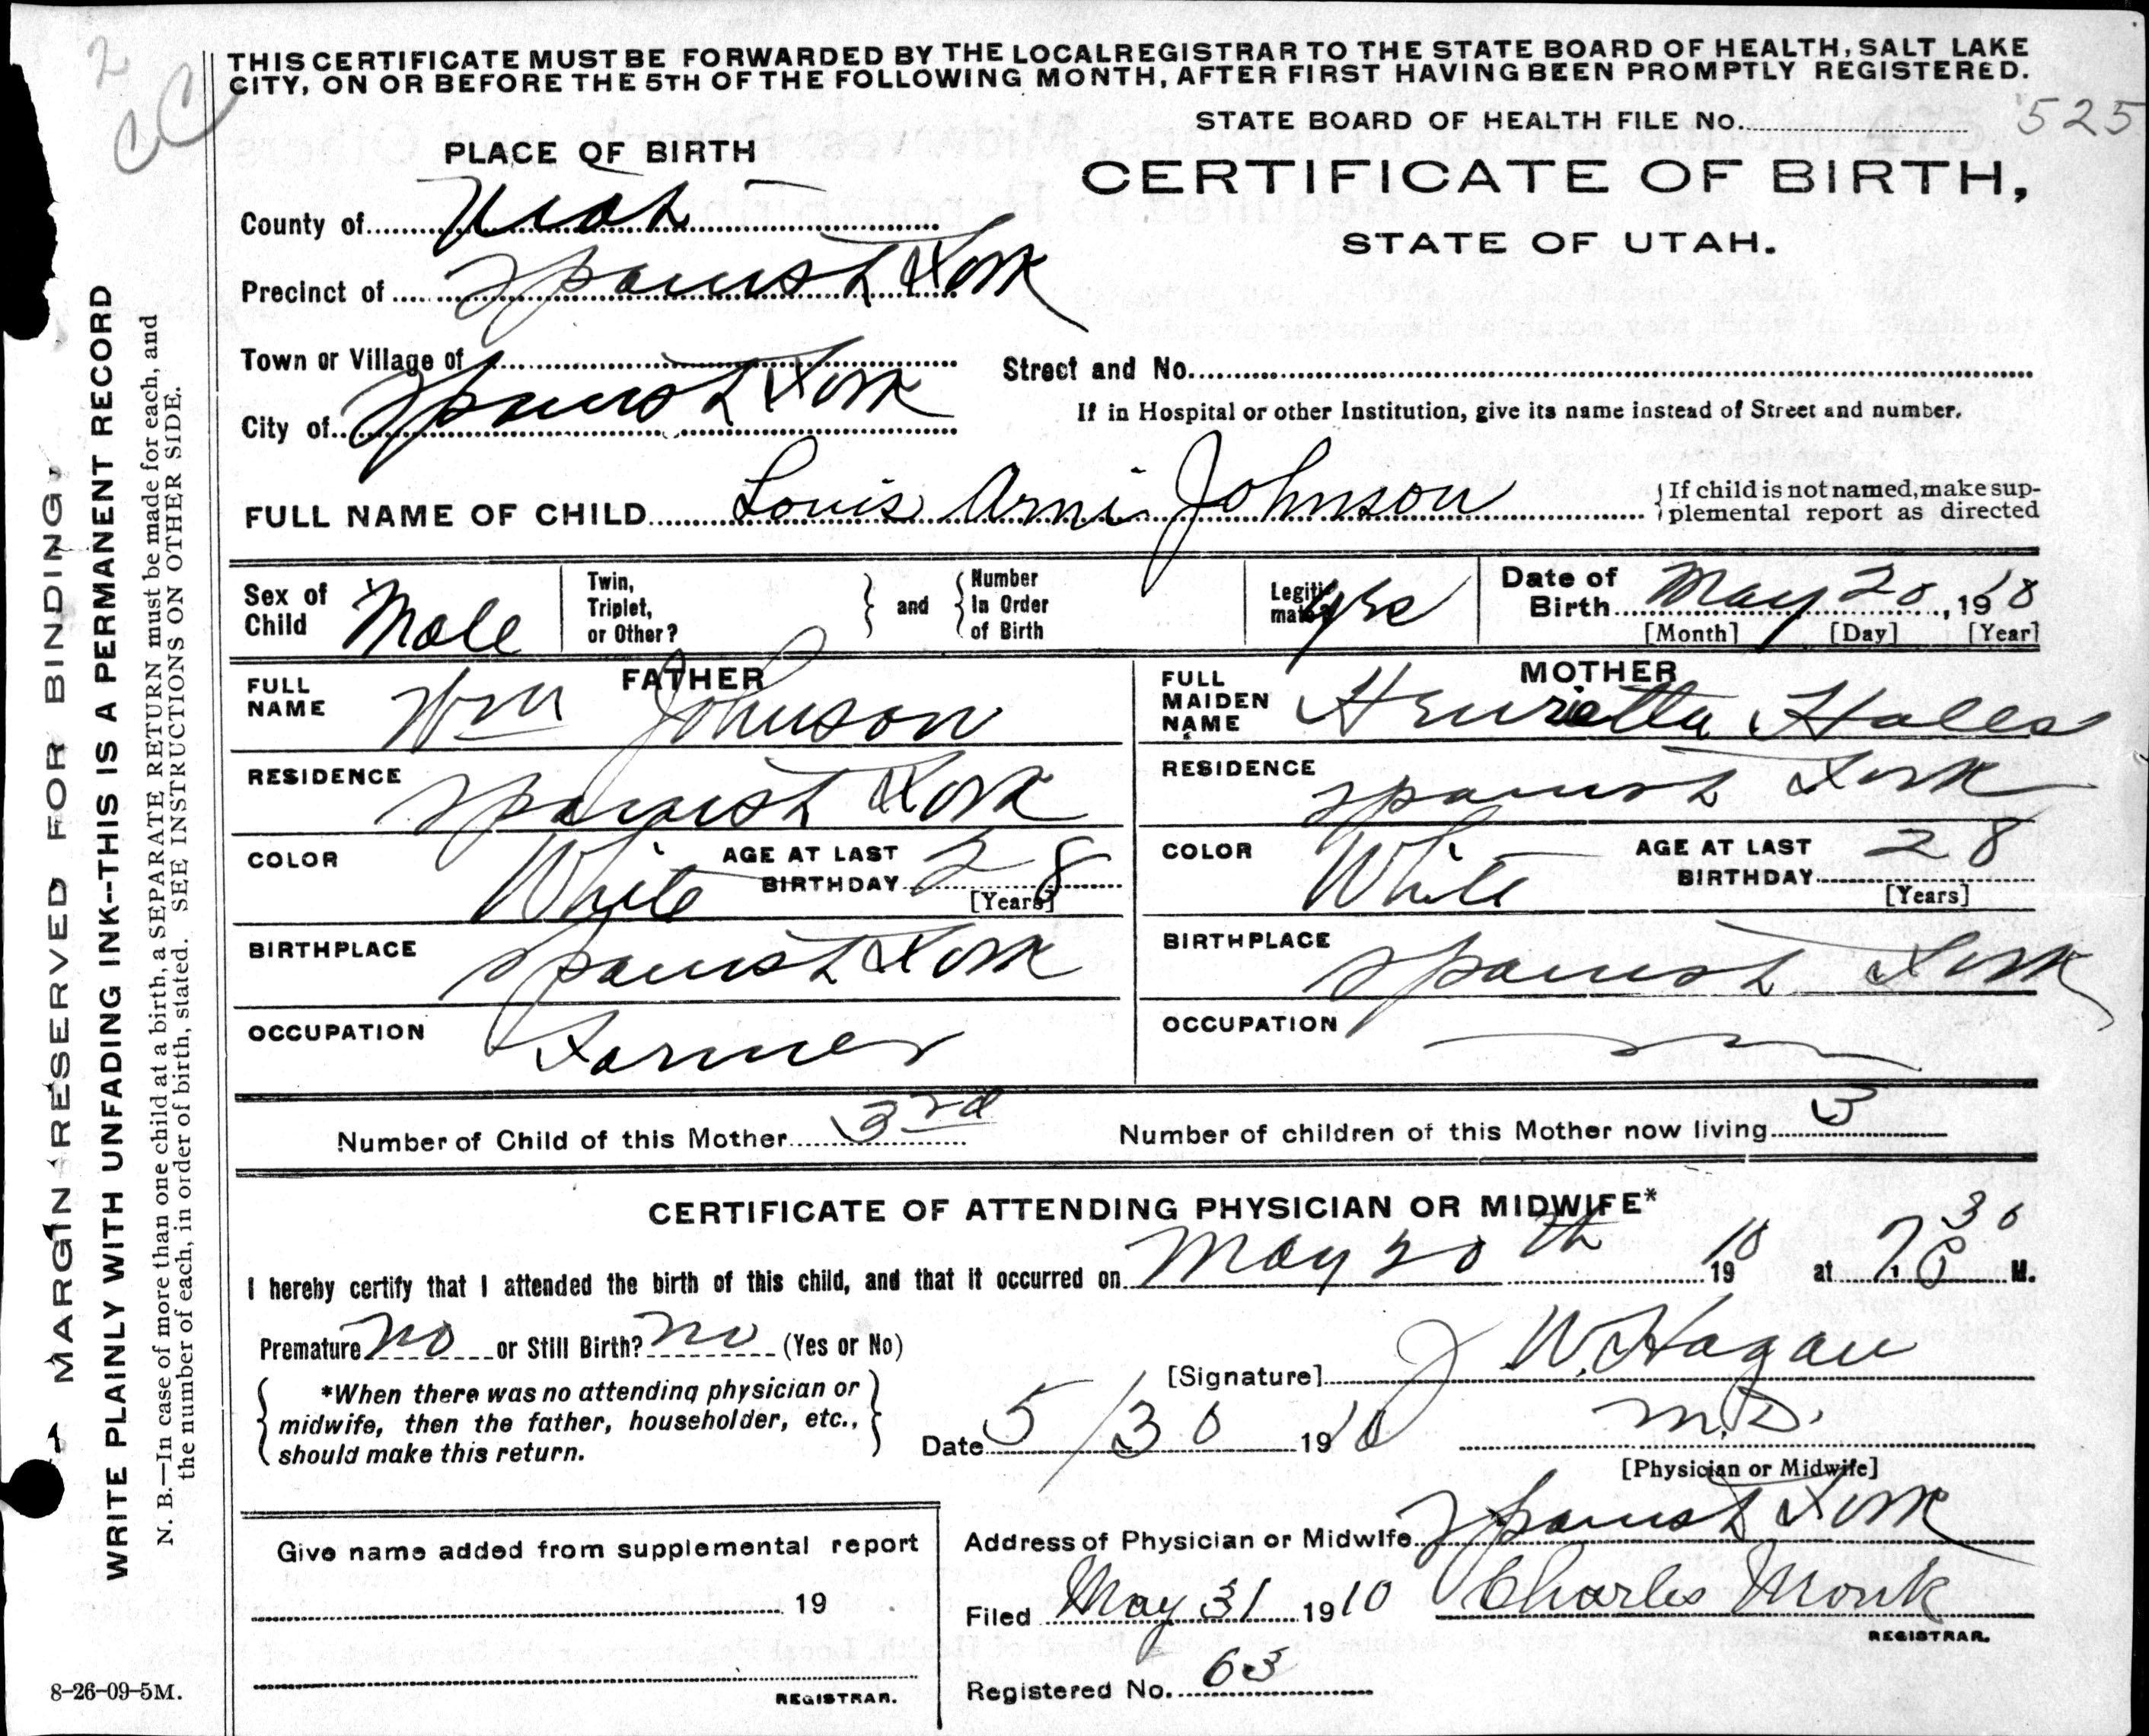 2
CC
THIS CERTIFICATE MUST BE FORWARDED BY THE LOCAL REGISTRAR TO THE STATE BOARD OF HEALTH, SALT LAKE
CITY, ON OR BEFORE THE 5TH OF THE FOLLOWING MONTH, AFTER FIRST HAVING BEEN PROMPTLY REGISTERED.
STATE BOARD OF HEALTH FILE No. 525
PLACE OF BIRTH
CERTIFICATE OF BIRTH,
STATE OF UTAH.
County of Utah
Precinct of Spanish Fork
Town or Village of
Street and No.
City of Spanish Fork
If in Hospital or other Institution, give its name instead of Street and number.
FULL NAME OF CHILD Louis Arni Johnson
{If child is not named, make sup-
plemental report as directed
Sex of Child Male
Twin, Triplet, or Other? } and { Number In Order of Birth
Legiti-mate? yes
Date of Birth May 20, 1910
[Month] [Day] [Year]
FATHER
FULL NAME Wm Johnson
RESIDENCE Spanish Fork
COLOR White AGE AT LAST BIRTHDAY 28 [Years]
BIRTHPLACE Spanish Fork
OCCUPATION Farmer
MOTHER
FULL MAIDEN NAME Henrietta Hales
RESIDENCE Spanish Fork
COLOR White AGE AT LAST BIRTHDAY 28 [Years]
BIRTHPLACE Spanish Fork
OCCUPATION
Number of Child of this Mother 3rd
Number of children of this Mother now living 3
CERTIFICATE OF ATTENDING PHYSICIAN OR MIDWIFE*
I hereby certify that I attended the birth of this child, and that it occurred on May 20th 1910 at 7:30 P M.
Premature no or Still Birth? no (Yes or No)
[Signature] J W. Hagan
{ *When there was no attending physician or
midwife, then the father, householder, etc.,
should make this return. }
Date 5/30 1910
M.D.
[Physician or Midwife]
Address of Physician or Midwife Spanish Fork
Give name added from supplemental report
19
REGISTRAR.
Filed May 31 1910 Charles Monk
REGISTRAR.
Registered No. 63
8-26-09-5M.
MARGIN RESERVED FOR BINDING
WRITE PLAINLY WITH UNFADING INK--THIS IS A PERMANENT RECORD
N. B.—In case of more than one child at a birth, a SEPARATE RETURN must be made for each, and
the number of each, in order of birth, stated. SEE INSTRUCTIONS ON OTHER SIDE.